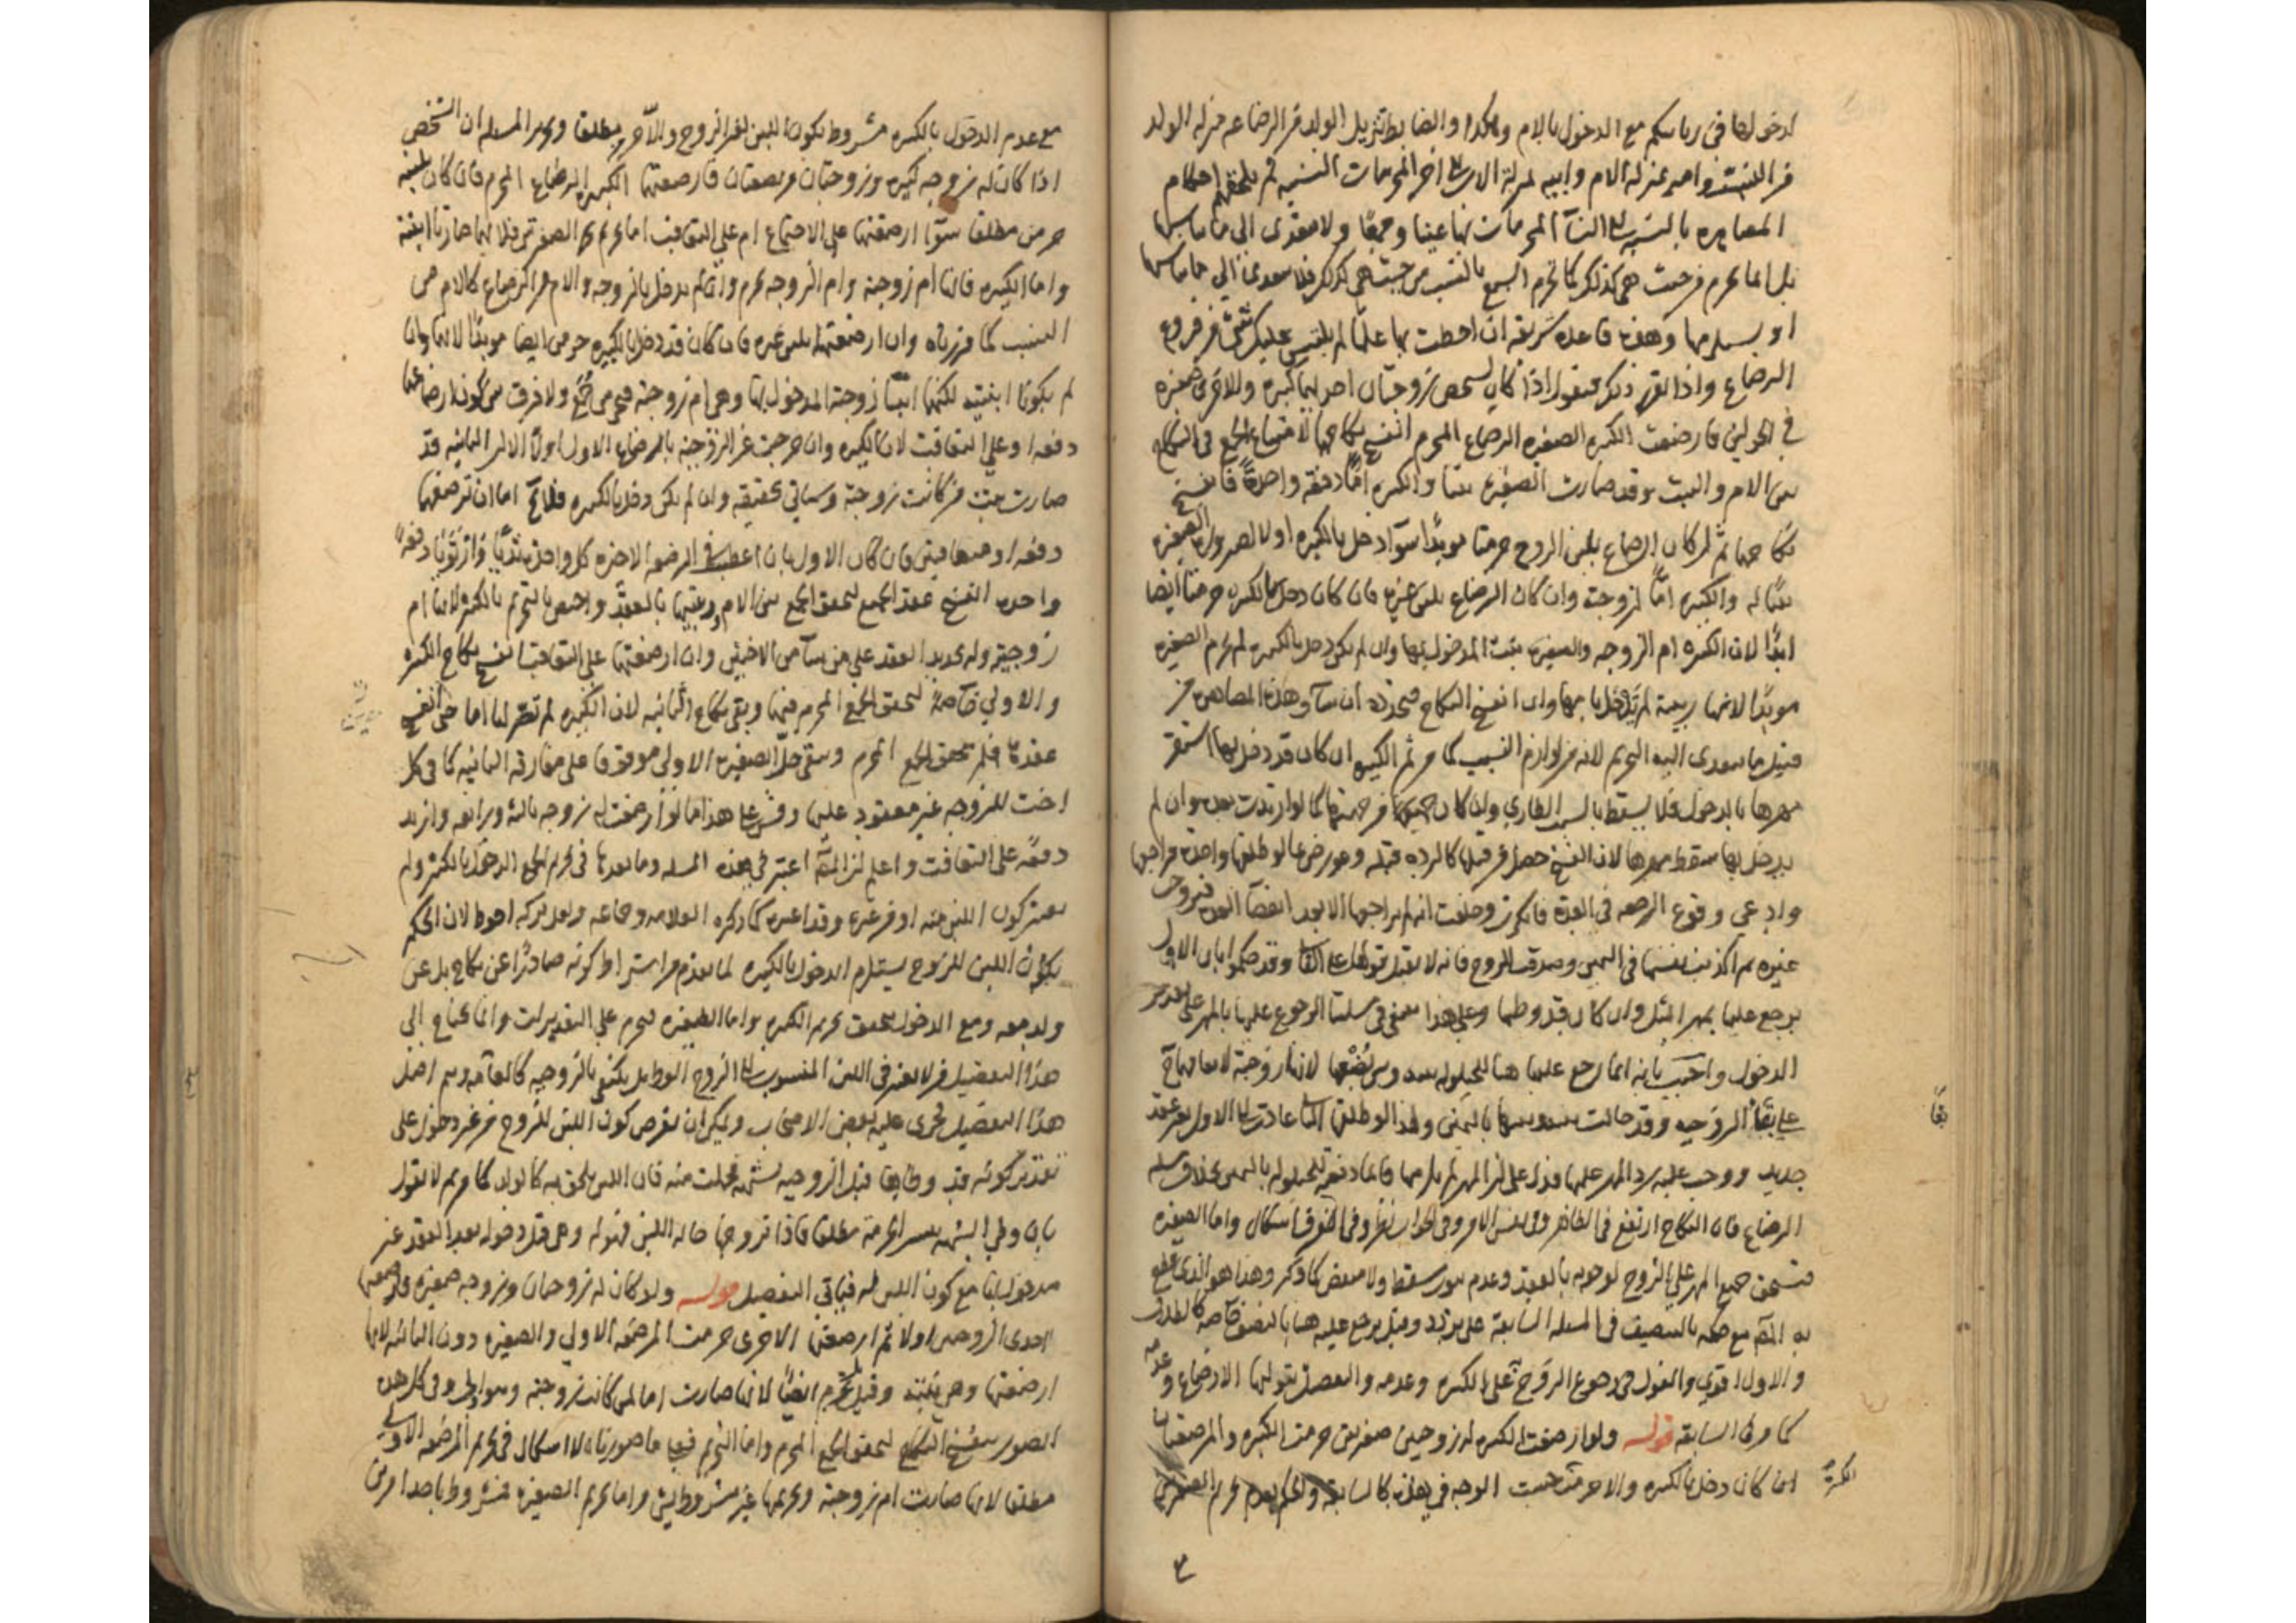 لدخولها في ربائبكم مع الدخول بالام وهكذا والضابط تنزيل الولد من الرضاع منزلة الولد
من النسب وامه بمنزلة الام وابيه بمنزلة الاب الى اخر المحرمات النسبيه ثم يلحقهم احكام
المصاهره بالنسبه الى النساء المحرمات بها عينا وجمعا ولا يتعدى الى ما يناسبها
بل انما يحرم من حيث هي كذلك كما تحرم السبع بالنسب من حيث هي كذلك فلا يتعدى الى ما يناسبها
او يستلزمها وهذه قاعدة شريفه ان احطت بها علما لم يلتبس عليك شيء من فروع
الرضاع واذا تقرر ذلك فنقول اذا كان لشخص زوجتان احديهما كبيره والاخرى صغيره
في الحولين فارضعت الكبيره الصغيره الرضاع المحرم انفسخ نكاحهما لامتناع الجمع في النكاح
بين الام والبنت وقد صارت الصغيره بنتا والكبيره اما دفعة واحدة فانفسخ
نكاحهما ثم ان كان الرضاع بلبن الزوج حرمتا مؤبدا سواء دخل بالكبيره او لا لصيرورة الصغيره
بنتا له والكبيره اما لزوجته وان كان الرضاع بلبن غيره فان كان دخل بالكبيره حرمتا ايضا
ابدا لان الكبيره ام الزوجه والصغيره بنت المدخول بها وان لم يكن دخل بالكبيره لم تحرم الصغيره
مؤبدا لانها ربيبة لم يدخل بامها وان انفسخ النكاح فيجدده ان شاء وهذه المصاهره من
قبيل ما يتعدى اليه التحريم لانه من لوازم النسب كما مر ثم الكبيره ان كان قد دخل بها استقر
مهرها بالدخول فلا يسقط بالسبب الطاري وان كان من جهتها كما لو ارتدت بعده وان لم
يدخل بها سقط مهرها لان الفسخ حصل من قبلها كالرده قبله وعورض بما لو طلقها واحدة فراجعها
وادعى وقوع الرجعه في العدة فانكرت وحلفت انه لم يراجعها الا بعد انقضاء العده فتزوجت
غيره ثم اكذبت نفسها في اليمين وصدقت الزوج فانه لا يقبل قولها على الثاني وقد حكموا بان الاول
يرجع عليها بمهر المثل وان كان قد وطئها وعلى هذا ينبغي في مسئلتنا الرجوع عليها بالمهر على تقدير
الدخول واجيب بانه انما رجع عليها هنا للحيلوله بينه وبين بضعها لانها زوجته لاتفاقهما
على بقاء الزوجيه وقد حالت بينه وبينها باليمين ولهذا لو طلقها الثاني عادت الى الاول بغير عقد
جديد ووجب عليه رد المهر عليها فدل على ان المهر لم يلزمها فانما دفعته للحيلوله باليمين بخلاف مسئلة
الرضاع فان النكاح ارتفع في الظاهر وفي نفس الامر وفي الجواب نظر وفي الفرق اشكال واما الصغيره
فتستحق جميع المهر على الزوج لوجوبه بالعقد وعدم ثبوت مسقط ولا منصف كما ذكر وهذا هو الذي قطع
به المص مع حكمه بالتنصيف في المسئلة السابقة على تردد وقيل يرجع عليه هنا بالنصف خاصه كالطلاق
والاول اقوى والقول في رجوع الزوج على الكبيره وعدمه والتفصيل بتوليها الارضاع وعدمه
كما مر في السابقه قوله ولو ارضعت الكبيره له زوجتين صغيرتين حرمت الكبيره والمرتضعتان
ان كان دخل بالكبيره والا حرمت حسب الوجه في هذه كالسابقه والحكم بعدم تحريم الصغيرتين
مع عدم الدخول بالكبيره مشروط بكون اللبن لغير الزوج والا حرمن مطلقا وتحرير المسئله ان الشخص
اذا كان له زوجه كبيره وزوجتان مرتضعتان فارضعتهما الكبيره الرضاع المحرم فان كان بلبنه
حرمن مطلقا سواء ارضعتهما على الاجتماع ام على التعاقب اما تحريم الصغيرتين فلانهما صارتا ابنته
واما الكبيره فلانها ام زوجته وام الزوجه تحرم وان لم يدخل بالزوجه والام من الرضاع كالام من
النسب كما قررناه وان ارضعتهما بلبن غيره فان كان قد دخل بالكبيره حرمن ايضا مؤبدا لانهما وان
لم يكونا ابنتيه لكنهما ابنتا زوجته المدخول بها وهي ام زوجته فيحرمن جمع ولا فرق بين كون ارضاعهما
دفعه او على التعاقب لان الكبيره وان خرجت عن الزوجية بارضاع الاولى اولا الا ان الثانيه قد
صارت بنت من كانت زوجته وسياتي تحقيقه وان لم يكن دخل بالكبيره فلا يخ اما ان ترضعهما
دفعه او متعاقبتين فان كان الاول بان اعطت في الرضعه الاخيره كل واحدة ثديا وارتوتا دفعة
واحده انفسخ عقد الجميع لتحقق الجمع بين الام وبنتيها بالعقد واختص التحريم بالكبيره لانها ام
زوجتيه وله تجديد العقد على من شاء من الاختين وان ارضعتهما على التعاقب انفسخ نكاح الكبيره
والاولى خاصة لتحقق الجمع المحرم فيهما وبقي نكاح الثانيه لان الكبيره لم تصر لها اما حتى انفسخ
عقدها فلم يتحقق الجمع المحرم وبقي حل الصغيره الاولى موقوفا على مفارقه الثانيه كما في كل
اخت للزوجه غير معقود عليها وقس على هذا ما لو ارضعت له زوجه ثالثه ورابعه وازيد
دفعة على التعاقب واعلم ان المص اعتبر في هذه المسئله وما بعدها في تحريم الجميع الدخول بالكبيره ولم
يعتبر كون اللبن منه او من غيره وقد اعتبره كما ذكره العلامه وجماعه ولعل تركه احوط لان الحكم
بكون اللبن للزوج يستلزم الدخول بالكبيره لما تقدم من اشتراط كونه صادرا عن نكاح بل عن
ولد معه ومع الدخول يتحقق تحريم الكبيره واما الصغيره فتحرم على التقديرات وانما يحتاج الى
هذا التفصيل من لا يعتبر في اللبن المنسوب الى الزوج الوطي بل يكتفي بالزوجيه كالعامه وهم اصل
هذا التفصيل فجرى عليه بعض الاصحاب ويمكن ان يفرض كون اللبن للزوج من غير دخول على
تقدير كونه قد وطئها قبل الزوجيه لشبهه فحملت منه فان اللبن يلحق به كالولد كما مر ثم لا نقول
بان وطي الشبهه ينشر الحرمة مطلقا فاذا تزوجها حاله اللبن فهو له وهي قبل دخوله بعد العقد غير
مدخول بها مع كون اللبن له فياتي التفصيل قوله ولو كان له زوجتان وزوجه صغيره فارضعتها
احدى الزوجتين اولا ثم ارضعتها الاخرى حرمت المرضعه الاولى والصغيره دون الثانيه لانها
ارضعتها وهي بنته وقيل تحرم ايضا لانها صارت اما لمن كانت زوجته وهو اولى وفي كل هذه
الصور ينفسخ النكاح لتحقق الجمع المحرم واما التحريم فبما صورناه لا اشكال في تحريم المرضعه الاولى
مطلقا لانها صارت ام زوجته وتحريمها غير مشروط بشيء واما تحريم الصغيره فمشروط باحد امرين